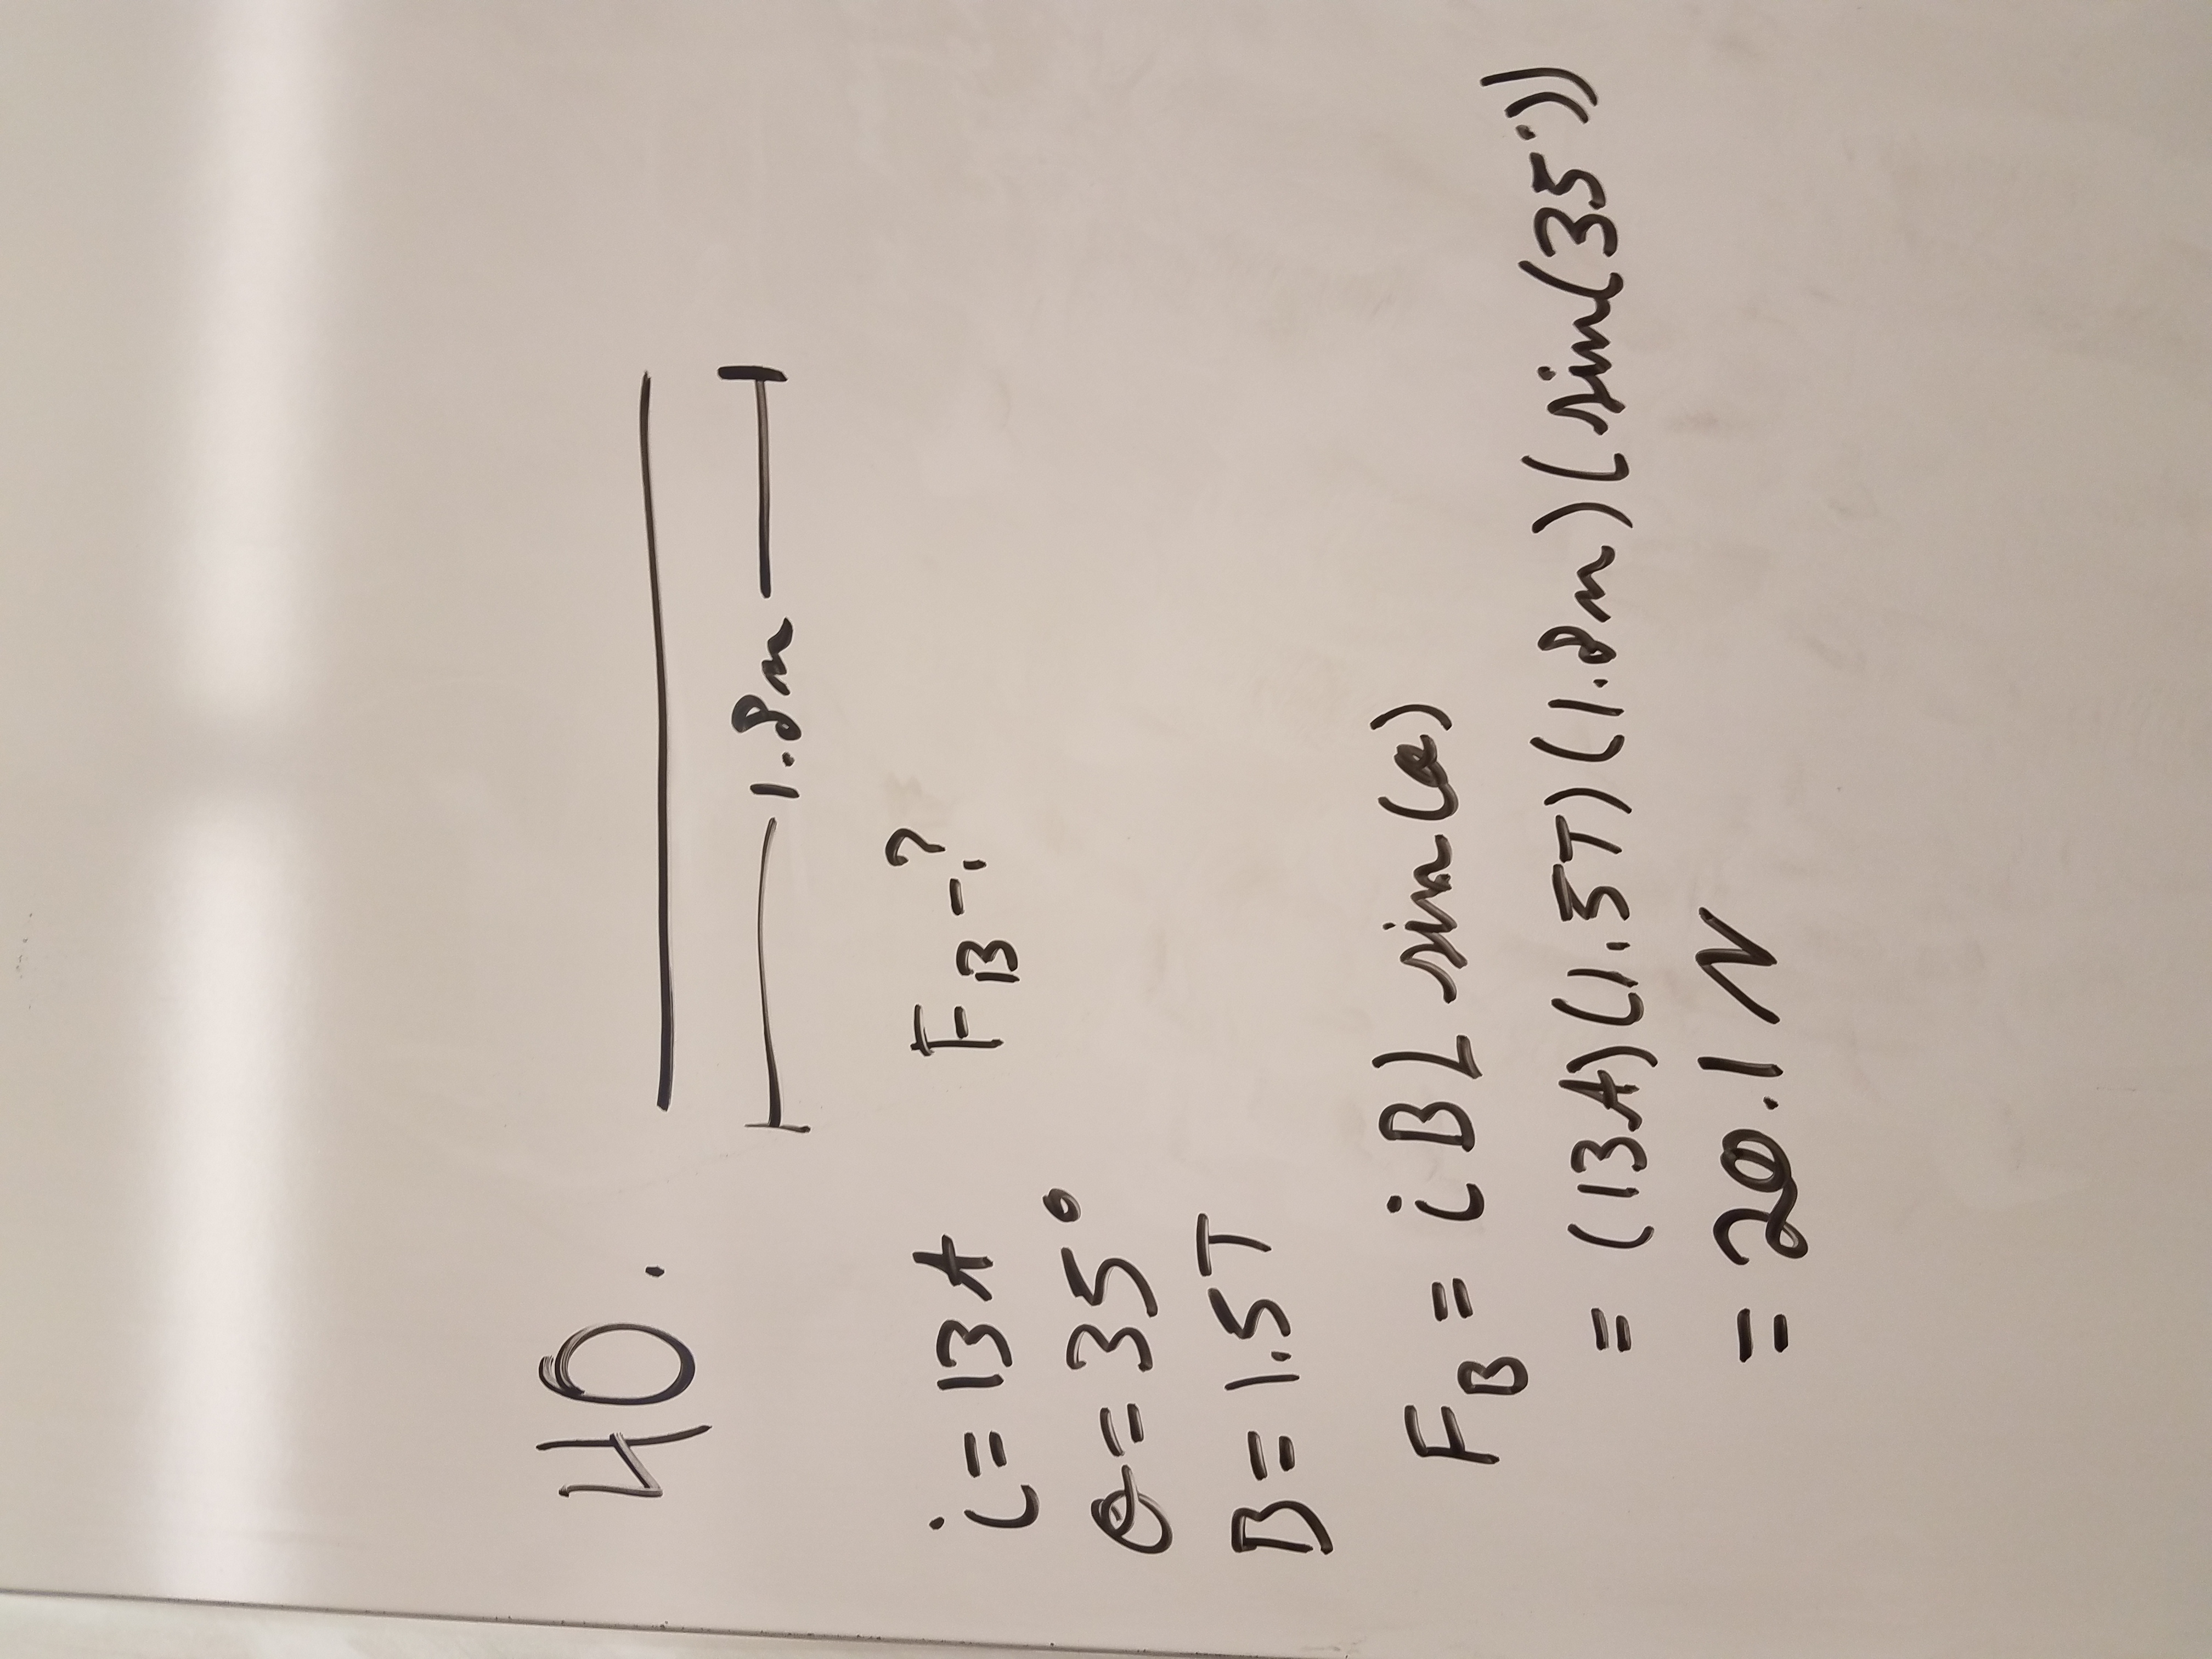 40.
1.8m
i = 13A F_B - ?
θ = 35°
B = 1.5T
F_B = i B L sin(θ)
= (13A)(1.5T)(1.8m)(sin(35°))
= 20.1 N